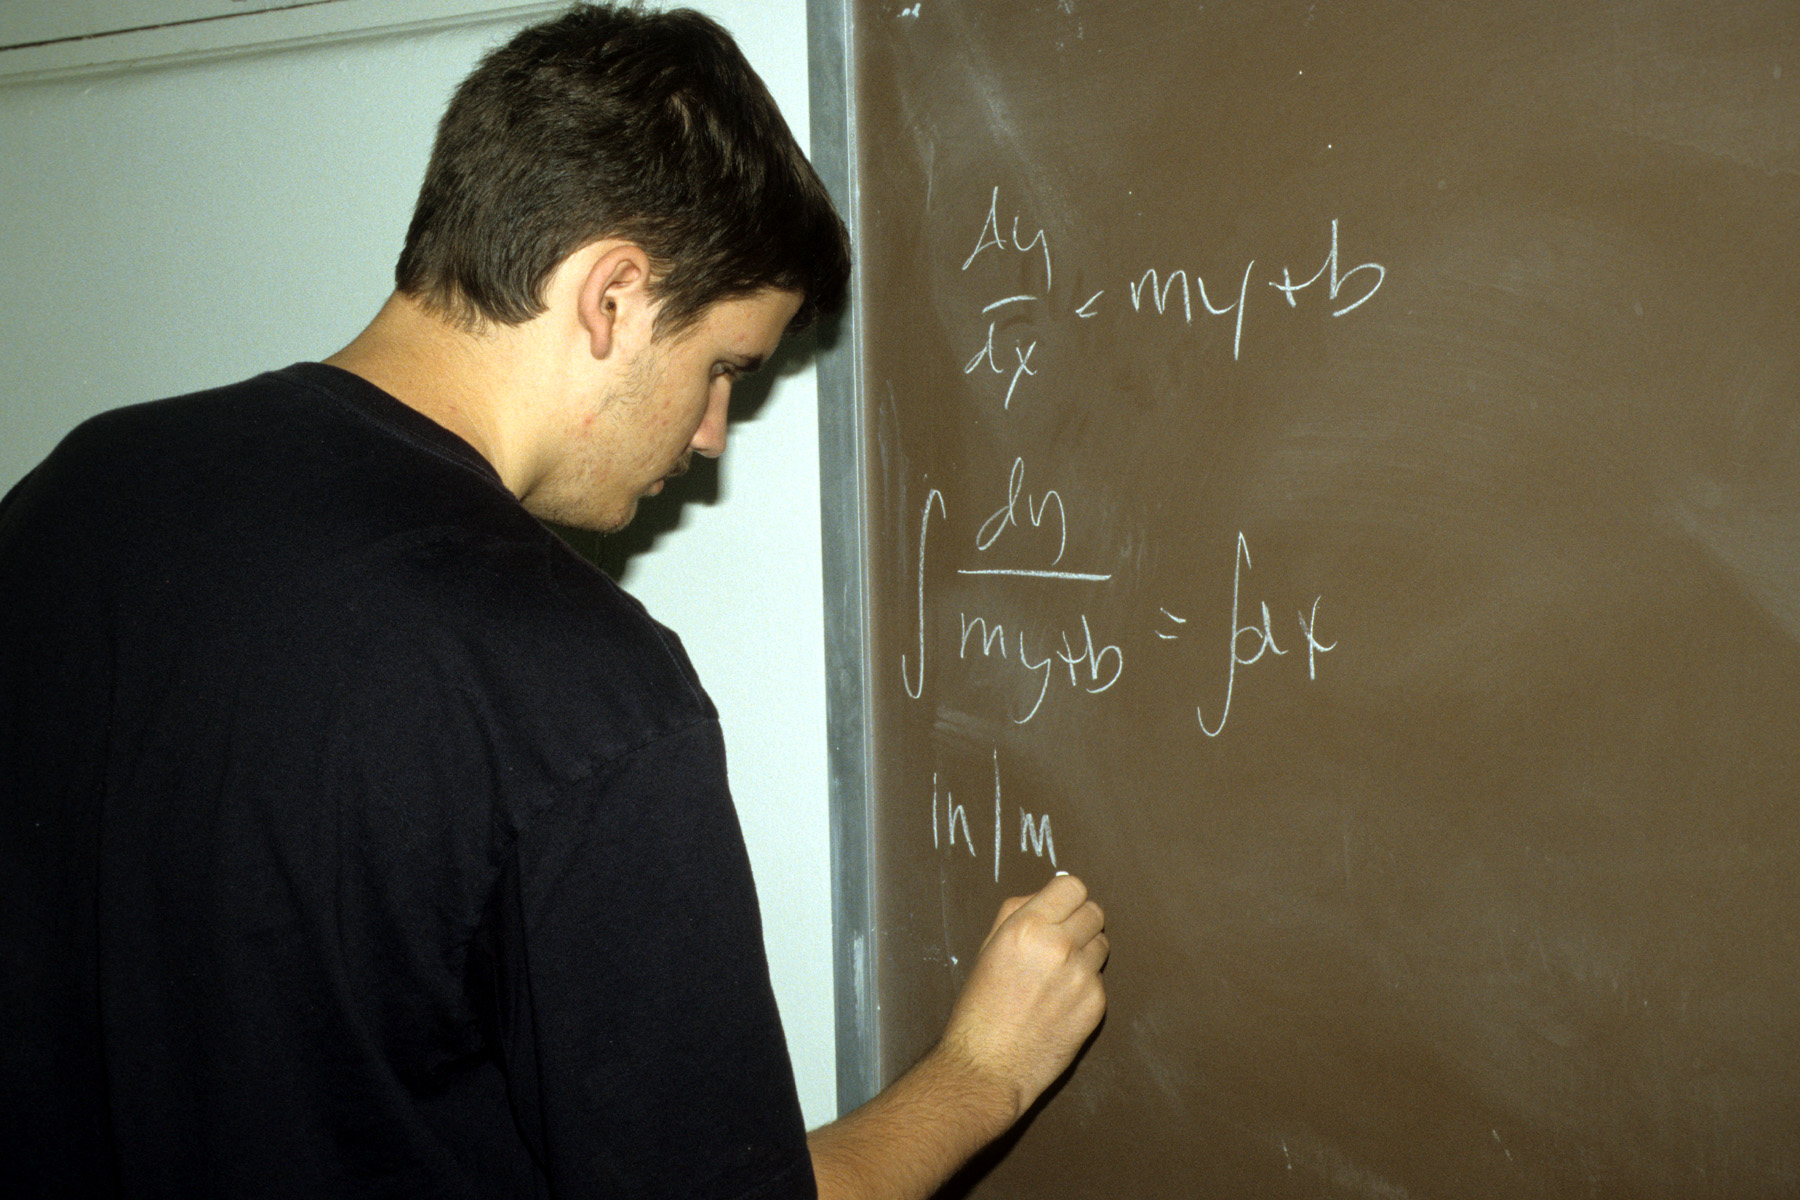 dy/dx = my+b
∫ dy/my+b = ∫dx
ln|m